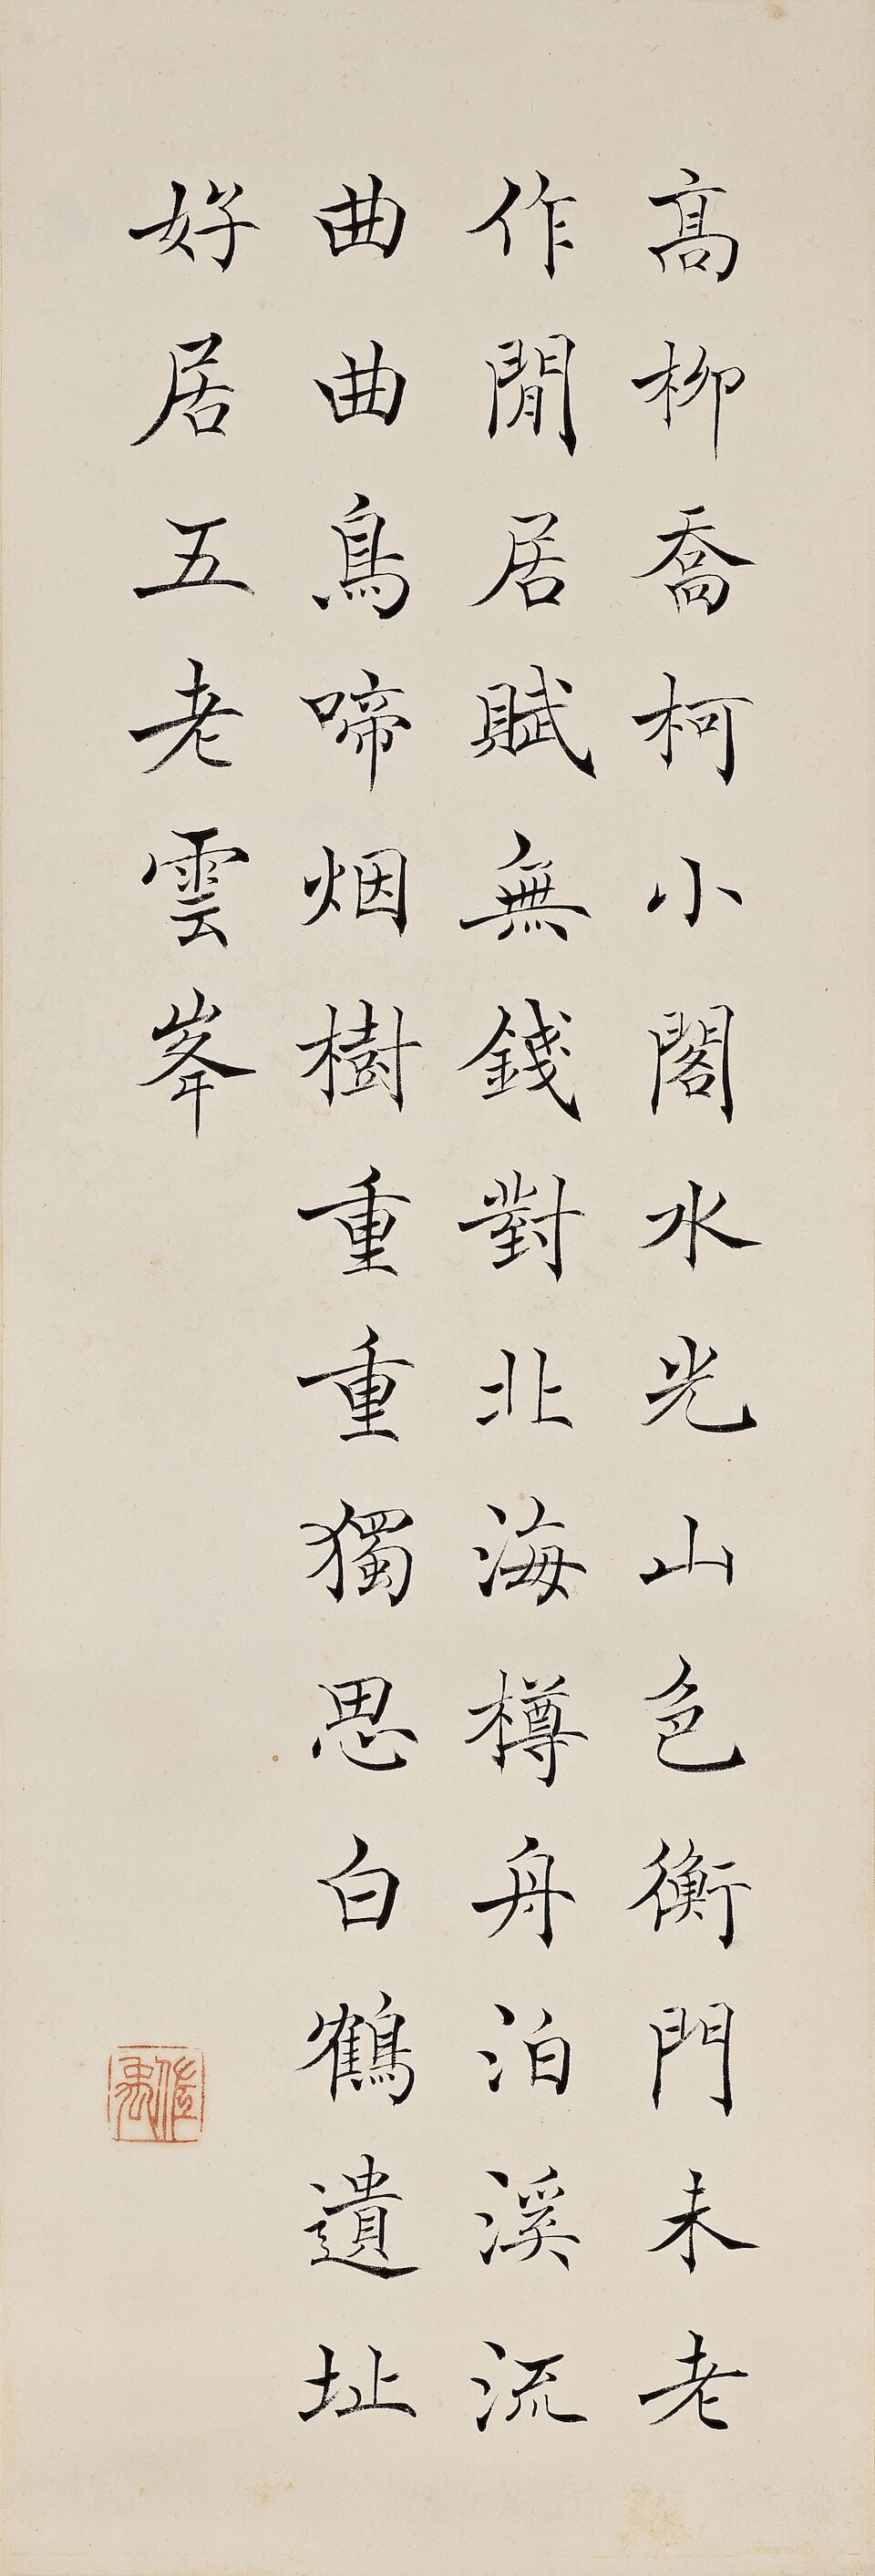 高柳喬柯小閣水光山色衡門未老
作閒居賦無錢對北海樽舟泊溪流
曲曲鳥啼烟樹重重獨思白鶴遺址
好居五老雲峯